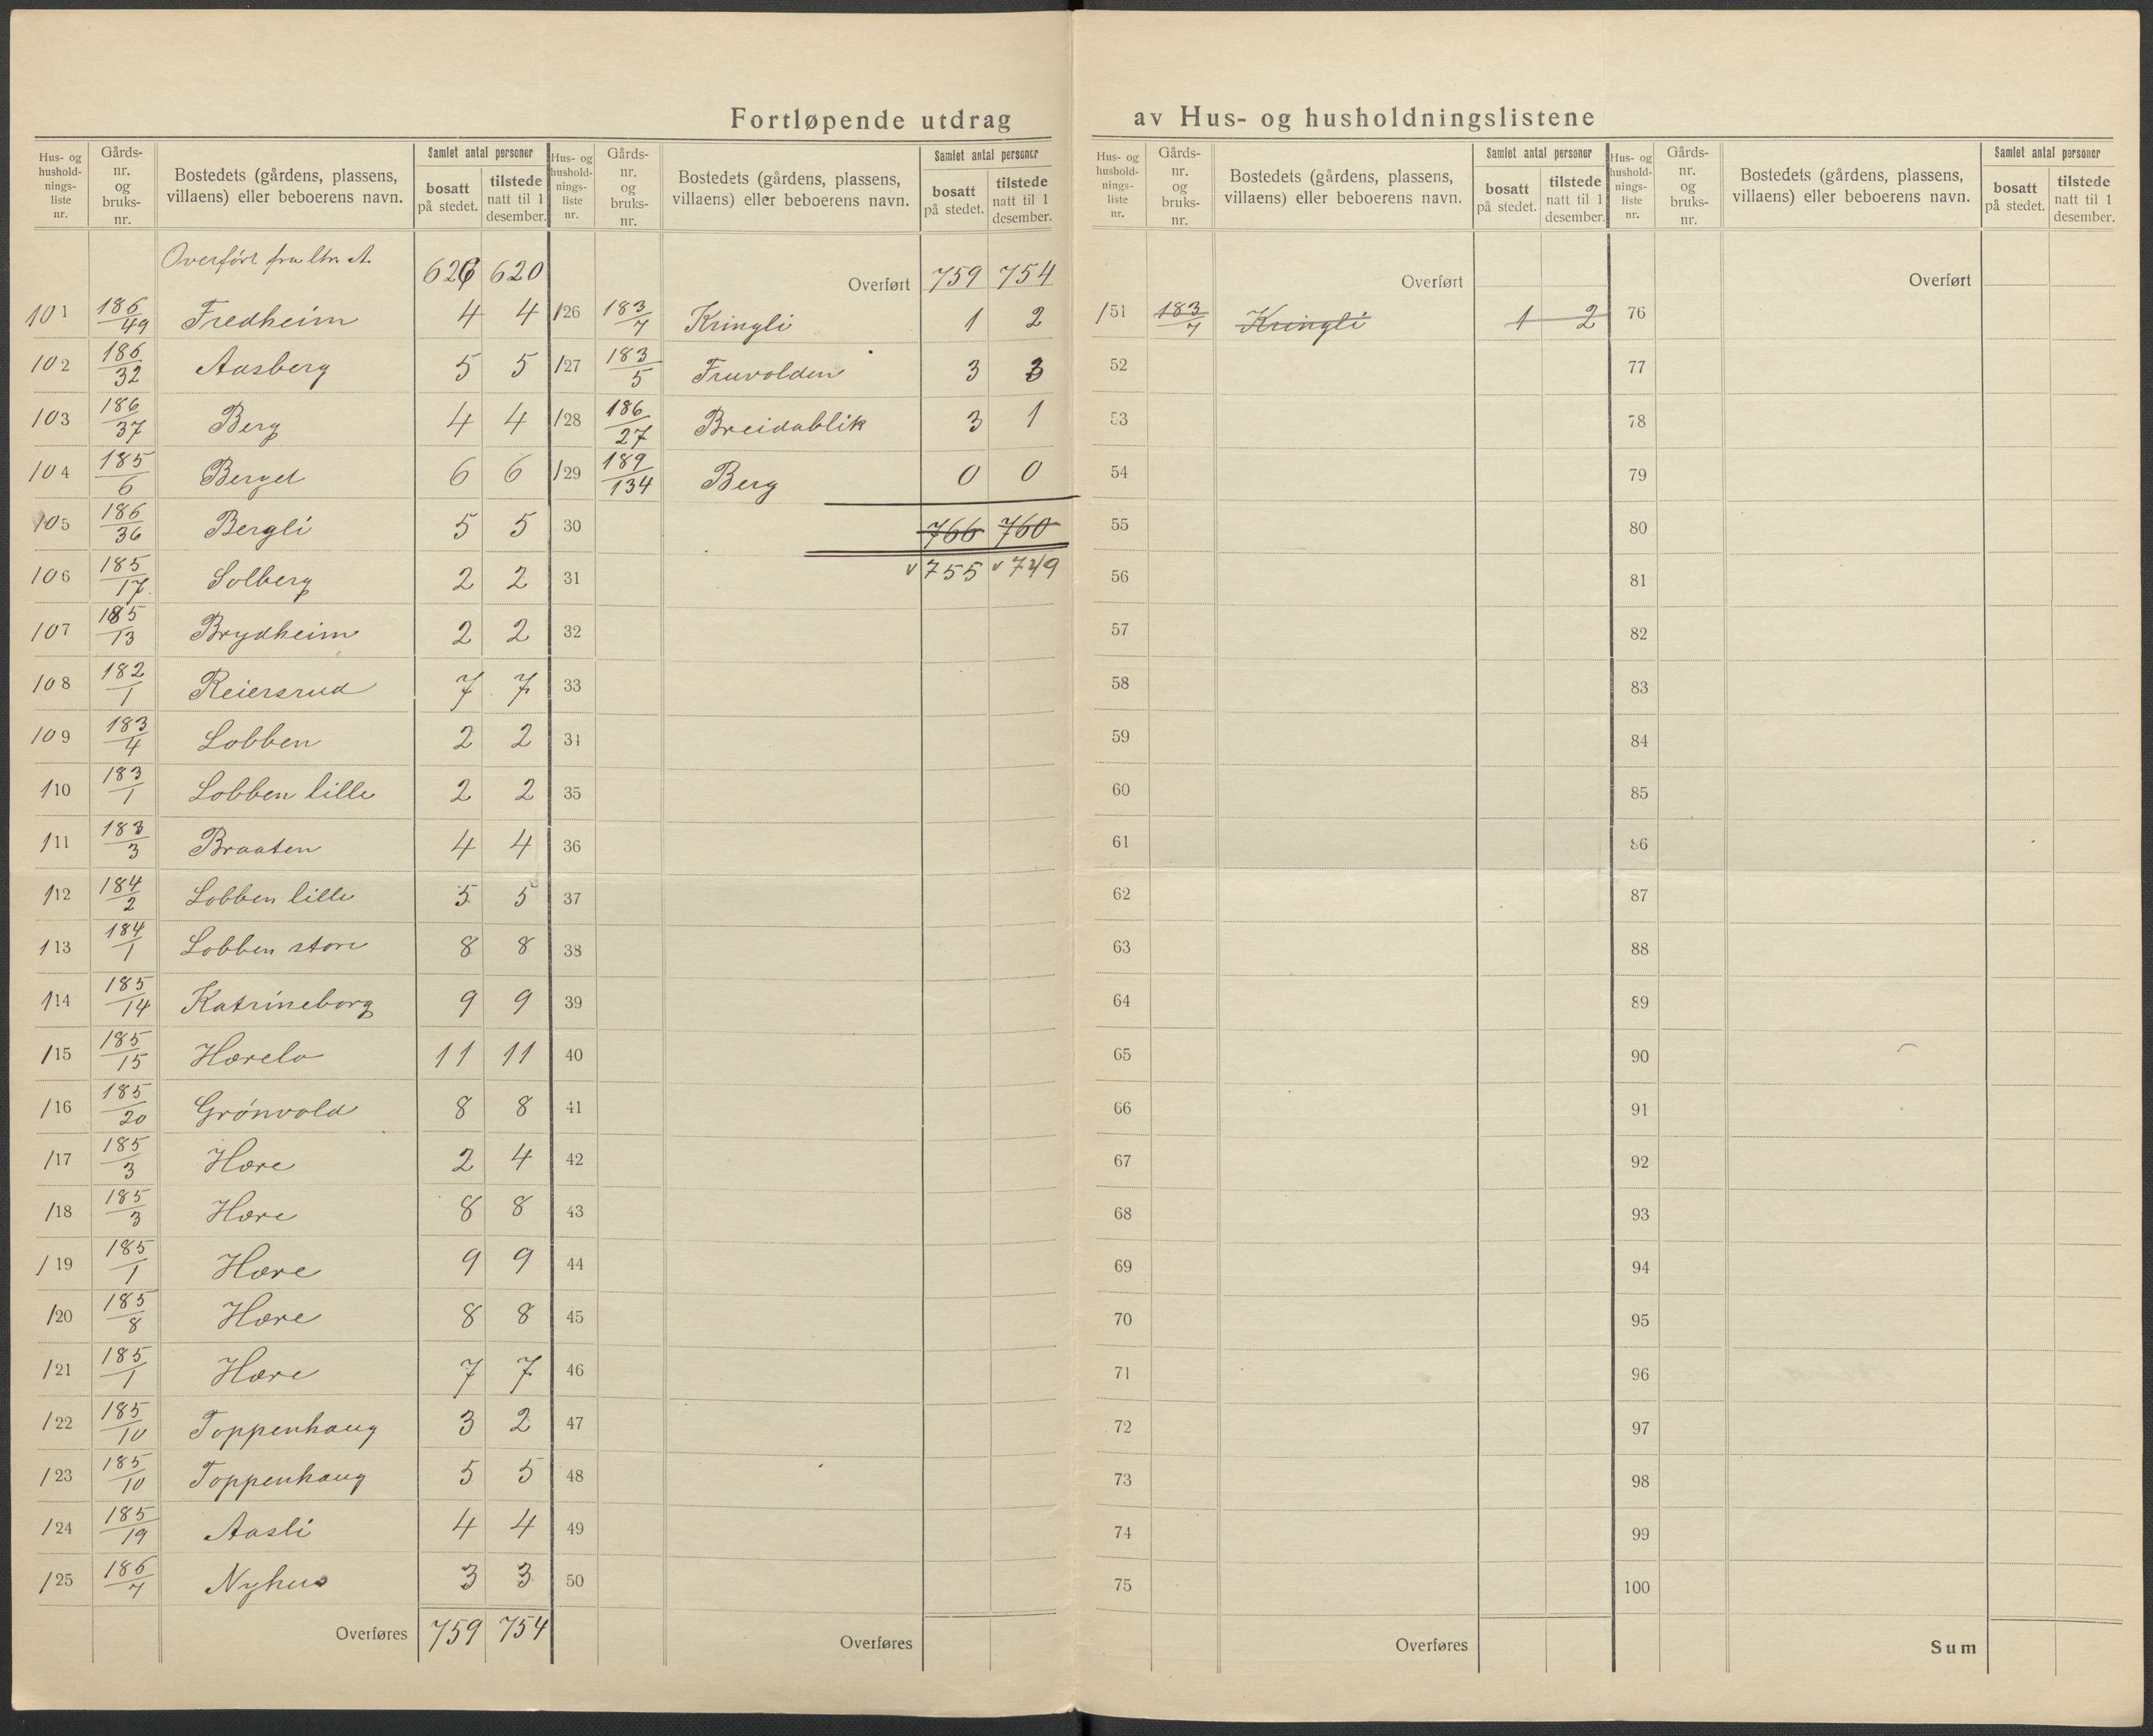 Fortløpende utdrag av Hus- og husholdningslistene
Hus- og hushold-nings-liste nr. Gårds-nr. og bruks-nr. Bostedets (gårdens, plassens, villaens) eller beboerens navn. Samlet antal personer bosatt på stedet. tilstede natt til 1 desember.
Overført fra ltr. A. 626 620
101 186/49 Fredheim 4 4
102 186/32 Aasberg 5 5
103 186/37 Berg 4 4
104 185/6 Berget 6 6
105 186/36 Bergli 5 5
106 185/17 Solberg 2 2
107 185/13 Brydheim 2 2
108 182/1 Reiersrud 7 7
109 183/4 Lobben 2 2
110 183/1 Lobben lille 2 2
111 183/3 Braaten 4 4
112 184/2 Lobben lille 5 5
113 184/1 Lobben store 8 8
114 185/14 Katrineborg 9 9
115 185/15 Horelo 11 11
116 185/20 Grönvold 8 8
117 185/3 Hore 2 4
118 185/3 Hore 8 8
119 185/1 Hore 9 9
120 185/8 Hore 8 8
121 185/1 Hore 7 7
122 185/10 Toppenhaug 3 2
123 185/10 Toppenhaug 5 5
124 185/19 Aasli 4 4
125 186/7 Nyhus 3 3
Overføres 759 754
Hus- og hushold-nings-liste nr. Gårds-nr. og bruks-nr. Bostedets (gårdens, plassens, villaens) eller beboerens navn. Samlet antal personer bosatt på stedet. tilstede natt til 1 desember.
Overført 759 754
126 183/7 Kringli 1 2
127 183/5 Fruvolden 3 3
128 186/27 Breidablik 3 1
129 189/134 Berg 0 0
30 766 760
31 v 755 v 749
32
33
34
35
36
37
38
39
40
41
42
43
44
45
46
47
48
49
50
Overføres
Hus- og hushold-nings-liste nr. Gårds-nr. og bruks-nr. Bostedets (gårdens, plassens, villaens) eller beboerens navn. Samlet antal personer bosatt på stedet. tilstede natt til 1 desember.
Overført
151 183/7 Kringli 1 2
52
53
54
55
56
57
58
59
60
61
62
63
64
65
66
67
68
69
70
71
72
73
74
75
Overføres
Hus- og hushold-nings-liste nr. Gårds-nr. og bruks-nr. Bostedets (gårdens, plassens, villaens) eller beboerens navn. Samlet antal personer bosatt på stedet. tilstede natt til 1 desember.
Overført
76
77
78
79
80
81
82
83
84
85
86
87
88
89
90
91
92
93
94
95
96
97
98
99
100
Sum